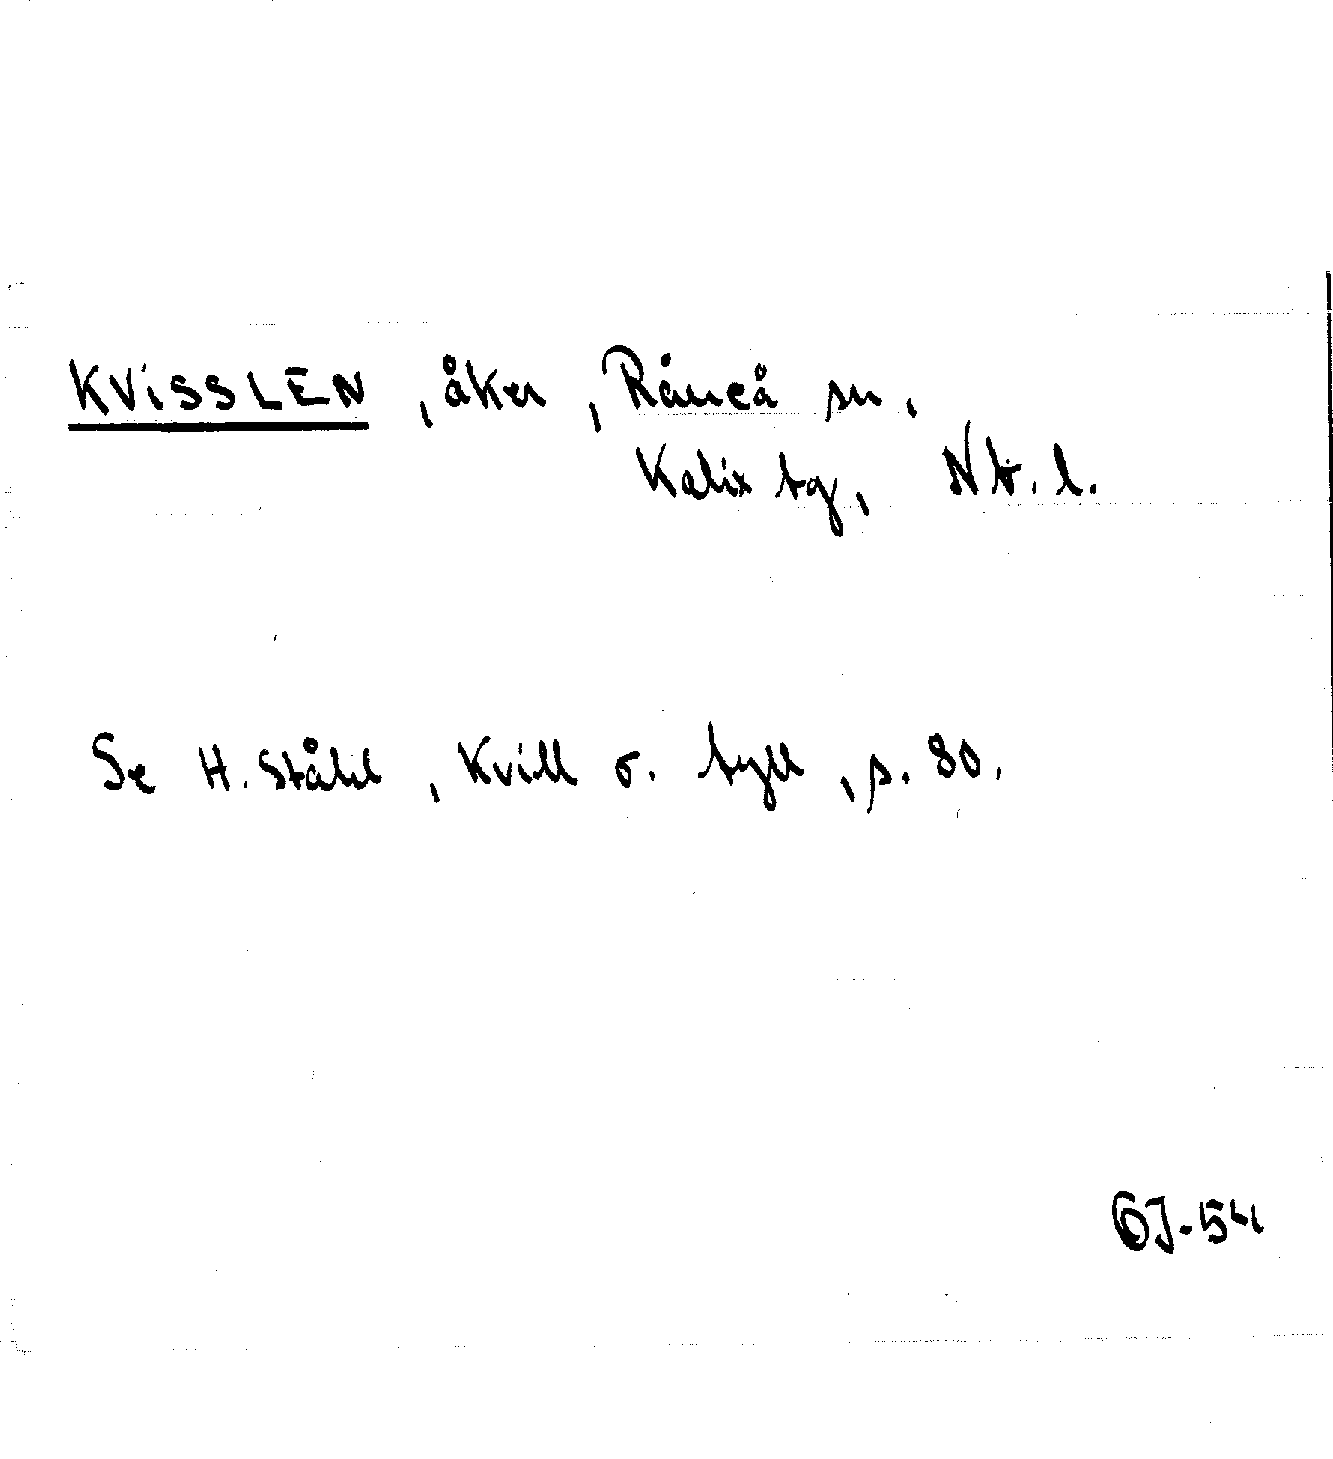 KVISSLEN, åker, Råneå sn,
Kalix tg, Nb. l.
Se H. Ståhl, Kvill o. tyll, s. 80.
GJ-54